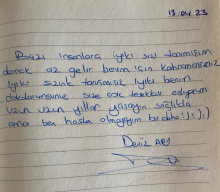 13.04.23
Bazı insanlara iyiki sizi tanımışım
demek az gelir benim için kahramansınız
iyiki sizinle tanışmışız iyiki benim
doktorumsunuz size çok teşekkür ediyorum
uzun uzun yıllar yaşayın sağlıkla
ama ben hasta olmayayım bir daha :) :)
Deniz